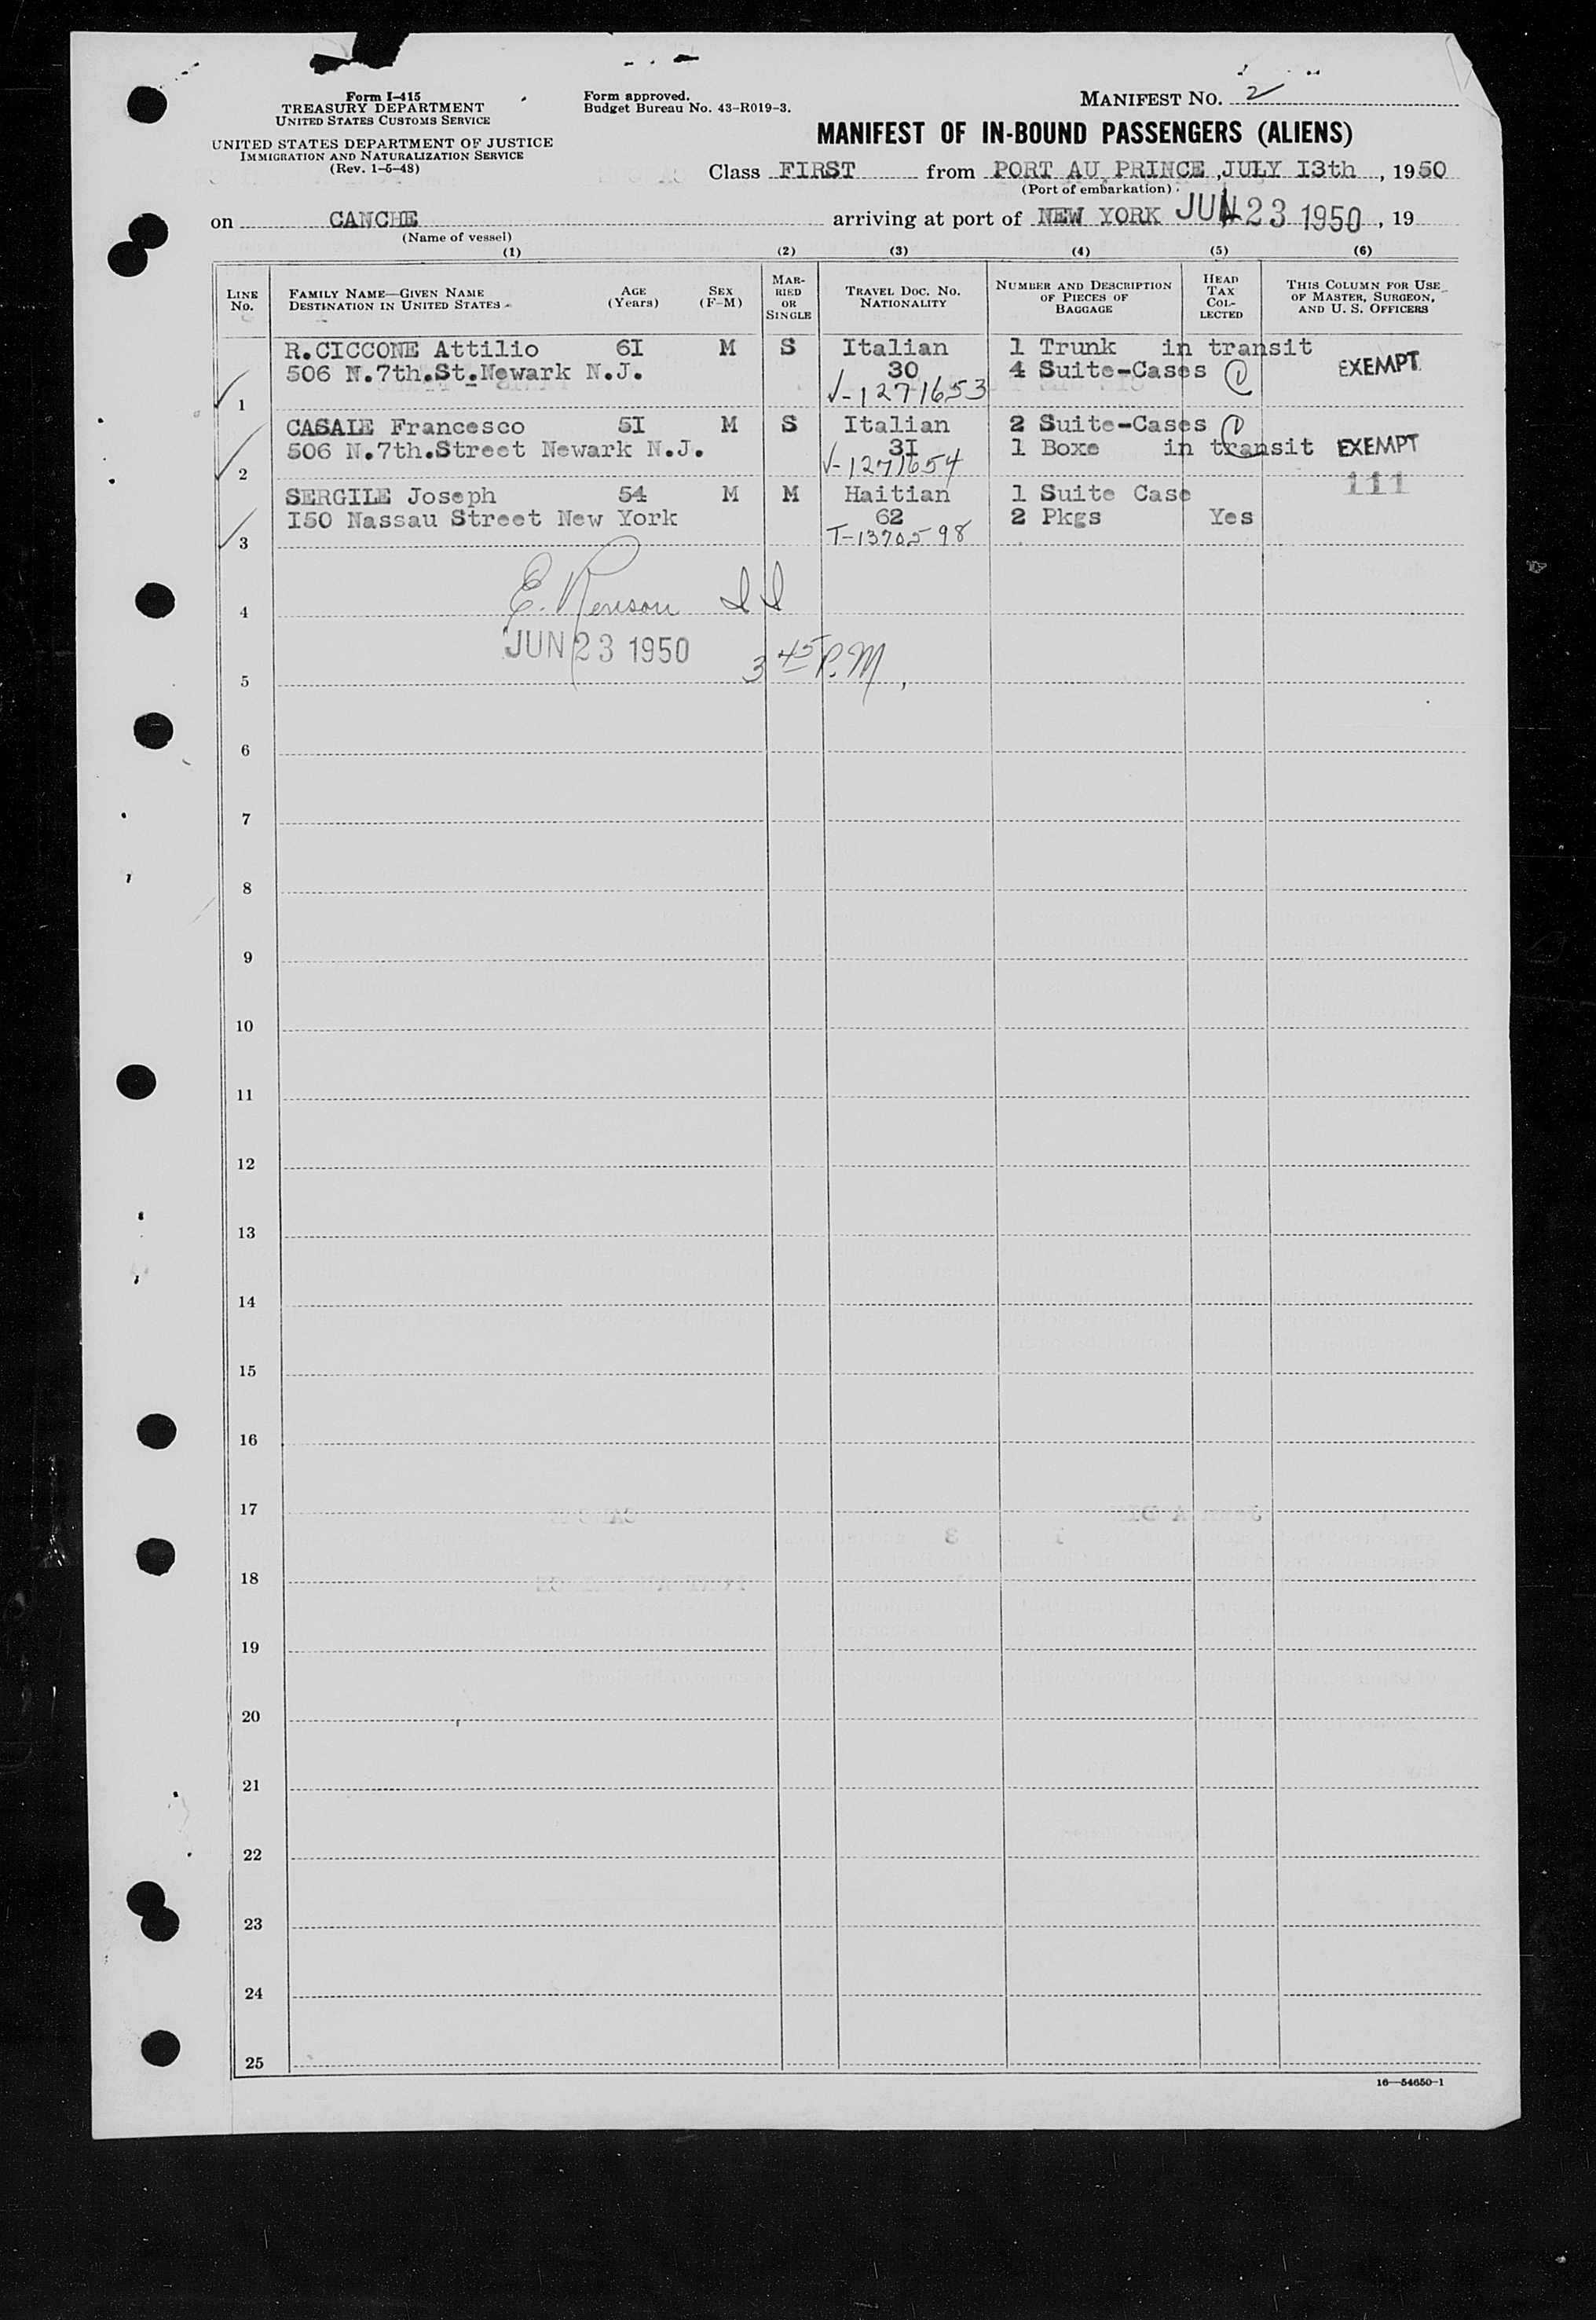 Form I-415
TREASURY DEPARTMENT
UNITED STATES CUSTOMS SERVICE
UNITED STATES DEPARTMENT OF JUSTICE
IMMIGRATION AND NATURALIZATION SERVICE
(Rev. 1-5-48)
Form approved.
Budget Bureau No. 43-R019-3.
MANIFEST NO. 2
MANIFEST OF IN-BOUND PASSENGERS (ALIENS)
Class FIRST from PORT AU PRINCE, JULY I3th, 1950
(Port of embarkation)
on CANCHE arriving at port of NEW YORK JUN 23 1950, 19
(Name of vessel)
(1) (2) (3) (4) (5) (6)
LINE No. FAMILY NAME—GIVEN NAME DESTINATION IN UNITED STATES AGE (Years) SEX (F-M) MARRIED OR SINGLE TRAVEL DOC. NO. NATIONALITY NUMBER AND DESCRIPTION OF PIECES OF BAGGAGE HEAD TAX COLLECTED THIS COLUMN FOR USE OF MASTER, SURGEON, AND U. S. OFFICERS
R.CICCONE Attilio 6I M S Italian 1 Trunk in transit
506 N.7th.St.Newark N.J. 30 4 Suite-Cases EXEMPT
1 V-1271653
CASALE Francesco 5I M S Italian 2 Suite-Cases
506 N.7th.Street Newark N.J. 3I 1 Boxe in transit EXEMPT
2 V-1271654
SERGILE Joseph 54 M M Haitian 1 Suite Case 111
I50 Nassau Street New York 62 2 Pkgs Yes
3 T-1370598
4 E. Renison II
JUN 23 1950 3 45 P.M.
5
6
7
8
9
10
11
12
13
14
15
16
17
18
19
20
21
22
23
24
25
16—54650-1